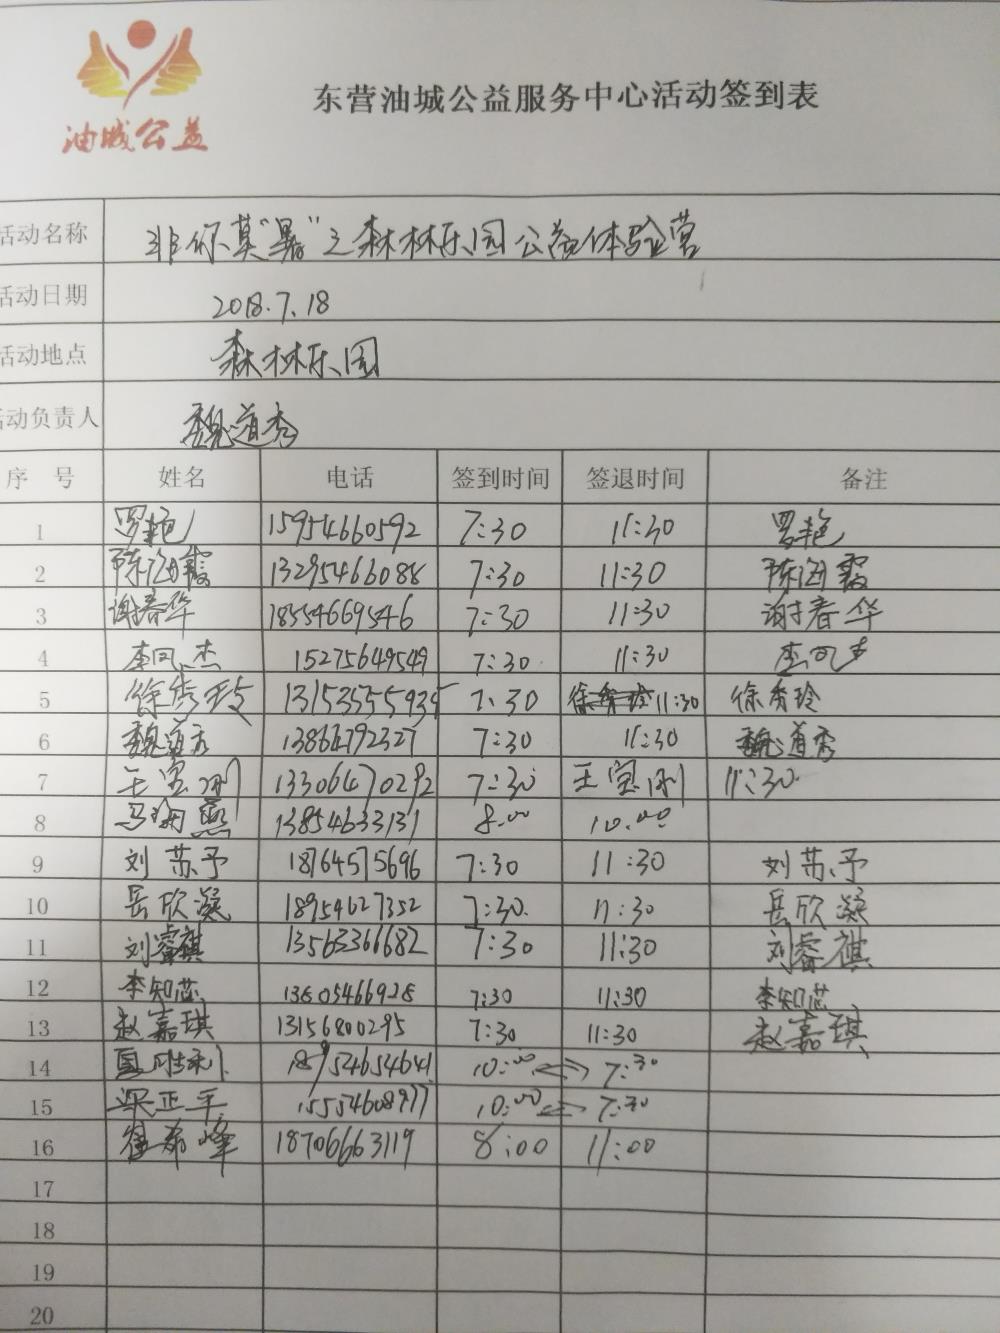 油城公益
东营油城公益服务中心活动签到表
活动名称 非你莫"暑"之森林乐园公益体验营
活动日期 2018.7.18
活动地点 森林乐园
活动负责人 魏道秀
序 号 姓名 电话 签到时间 签退时间 备注
1 罗艳 15954660592 7:30 11:30 罗艳
2 陈海霞 13295466088 7:30 11:30 陈海霞
3 谢春华 18554669546 7:30 11:30 谢春华
4 李凤杰 15275649549 7:30 11:30 李凤杰
5 徐秀玲 13153555935 7:30 徐秀玲 11:30 徐秀玲
6 魏道秀 13866792327 7:30 11:30 魏道秀
7 王宝刚 13306470292 7:30 王宝刚 11:30
8 马海燕 13854633131 8:00 10:00
9 刘苏予 18764575696 7:30 11:30 刘苏予
10 岳欣凝 18954627352 7:30 11:30 岳欣凝
11 刘睿祺 13563366682 7:30 11:30 刘睿祺
12 李知芯 13805466928 7:30 11:30 李知芯
13 赵嘉琪 13156800295 7:30 11:30 赵嘉琪
14 胜利 18954654641 10:00 7:30
15 梁正平 15554608977 10:00 7:30
16 希峰 18706663119 8:00 11:00
17
18
19
20